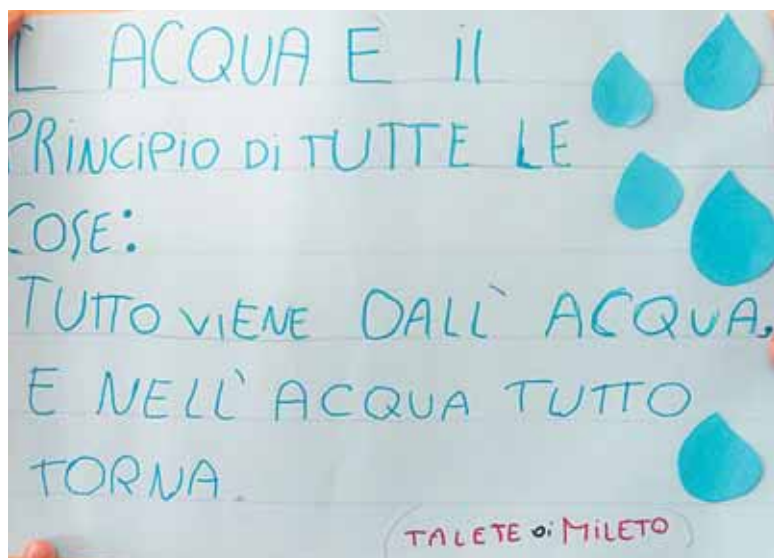 L ACQUA E il
PRINCIPIO Di TUTTE LE
COSE:
TUTTO ViENE DALL` ACQUA,
E NELL` ACQUA TUTTO
TORNA.
TALETE Di MiLETO